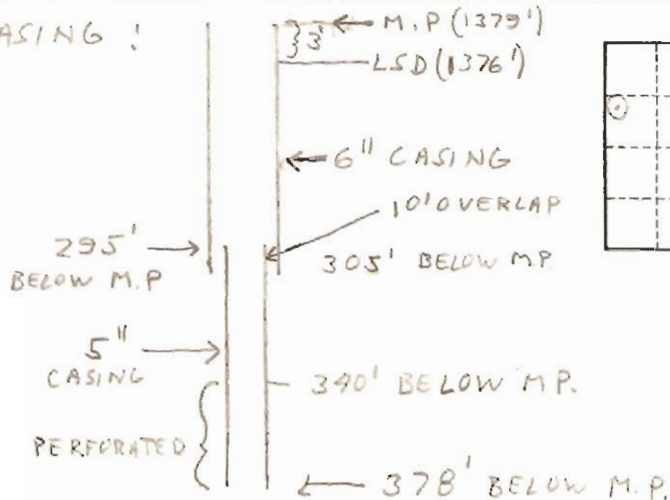 ASING :
3'
M.P (1379')
LSD (1376')
6" CASING
10' OVERLAP
295'
BELOW M.P
305' BELOW M.P.
5"
CASING
340' BELOW M.P.
PERFORATED
378' BELOW M.P.